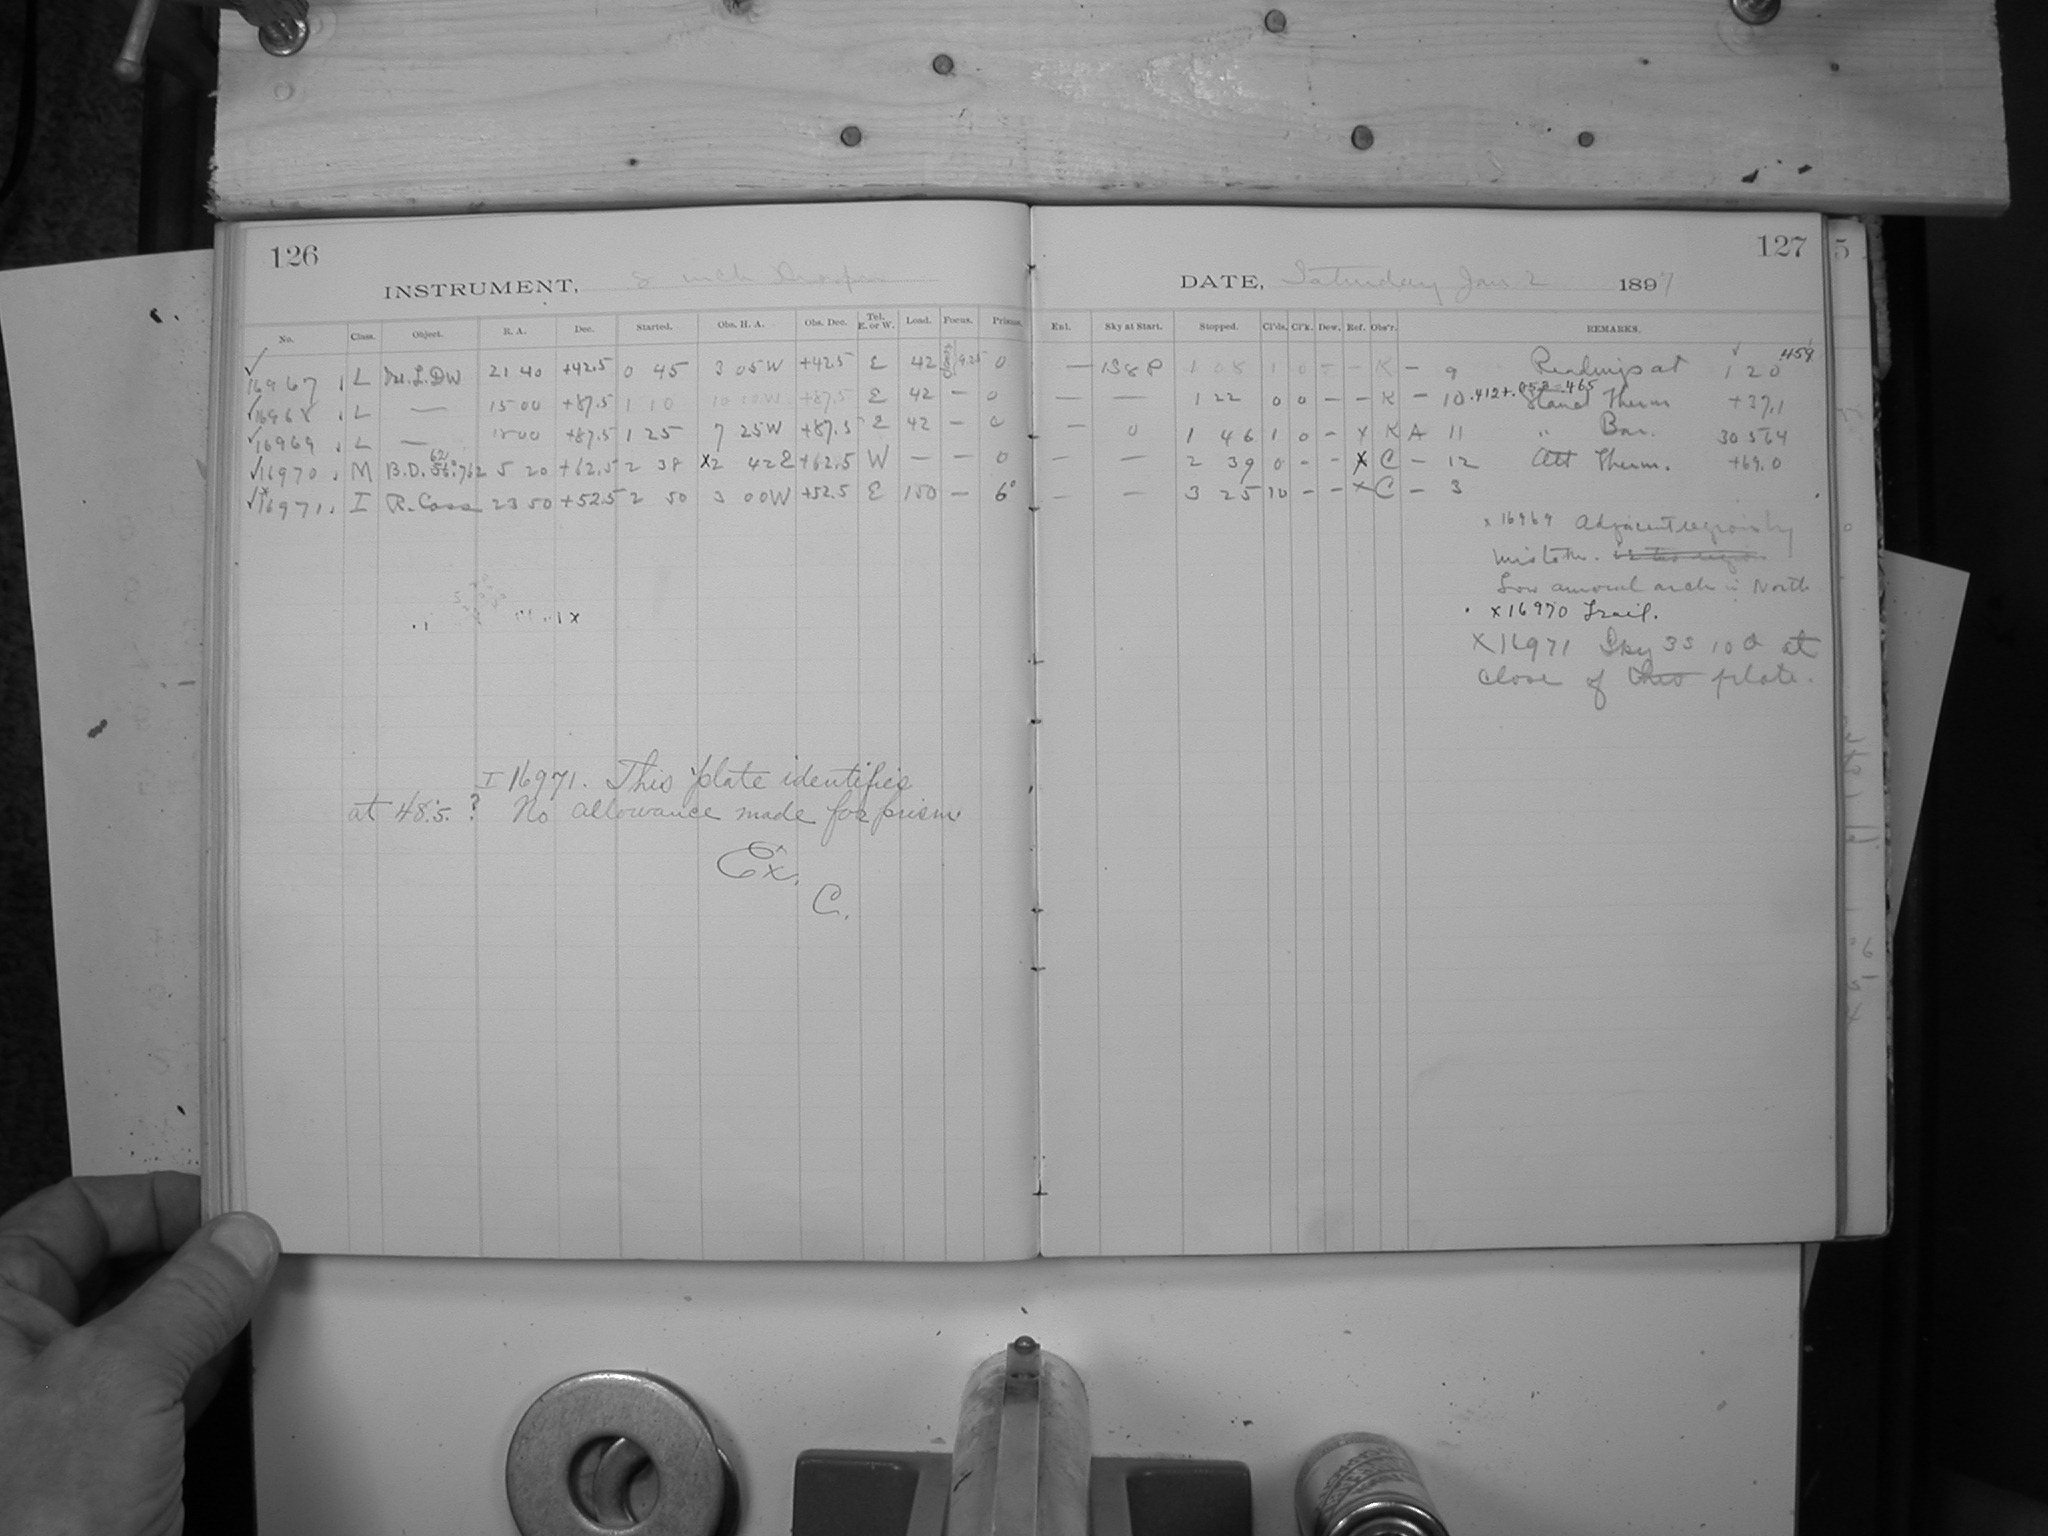 126
INSTRUMENT, 8 inch Draper
No. Class. Object. R. A. Dec. Started. Obs. H. A. Obs. Dec. Tel. E. or W. Load. Focus. Prisms.
✓ 16967 L DW 21 40 +42.5 0 45 3 05 W +42.5 E 42 9.25 0
✓ 16968 L — 15 00 +87.5 1 10 10 10 W +87.5 E 42 — 0
✓ 16969 L — 18 00 +87.5 1 25 7 25 W +87.5 E 42 — 0
✓ 16970 M B.D. 62° 56°762 5 20 +62.5 2 38 x2 42 E +62.5 W — — 0
✓ x 16971 I R. Cass 23 50 +52.5 2 50 3 00 W +52.5 E 150 — 6°
I 16971. This plate identifies
at 48.5. ? No allowance made for prism
Ex.
C.
127
DATE, Saturday Jan 2 1897
Enl. Sky at Start. Stopped. Cl'ds. Cl'k. Dew. Ref. Obs'r. REMARKS.
— 1 08 1 0 — — K — 9 Readings at 1 20 .458
— — 1 22 0 0 — — K — 10 .412+.053=.465 Stand Therm +37.1
— 0 1 46 1 0 — x K A 11 " Bar. 30 564
— — 2 39 0 — — x C — 12 Att Therm. +69.0
— — 3 25 10 — — x C — 3
x 16969 Adjacent region by
mistake.
Low auroral arch in North
x 16970 Trail.
x 16971 Sky 3S 10 0 at
close of this plate.
5